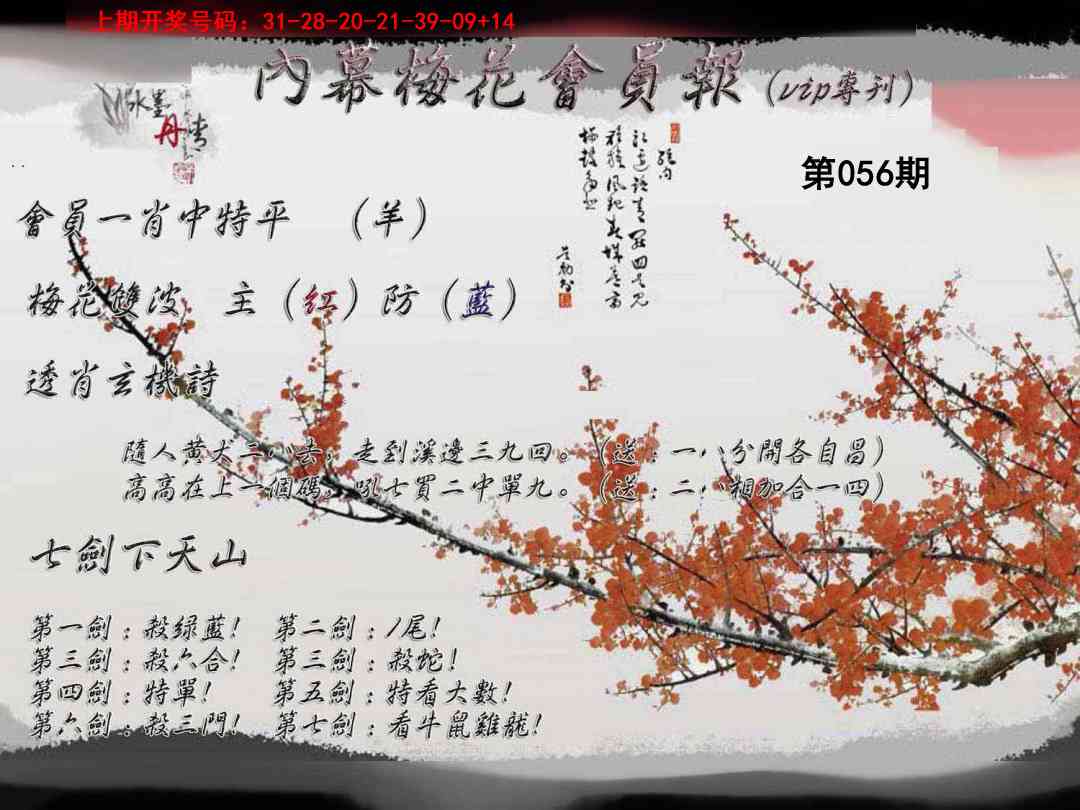 上期开奖号码：31-28-20-21-39-09+14
內幕梅花會員報（vip專刊）
水墨
丹青
第056期
會員一肖中特平　（羊）
梅花雙波　主（紅）防（藍）
透肖玄機詩
隨人黄犬三八去，走到溪邊三九回。（送：一八分開各自昌）
高高在上一個碼，吼七買二中單九。（送：二八相加合一四）
七劍下天山
第一劍：殺绿藍！　第二劍：1尾！
第三劍：殺六合！　第三劍：殺蛇！
第四劍：特單！　第五劍：特看大數！
第六劍：殺三門！　第七劍：看牛鼠雞龍！